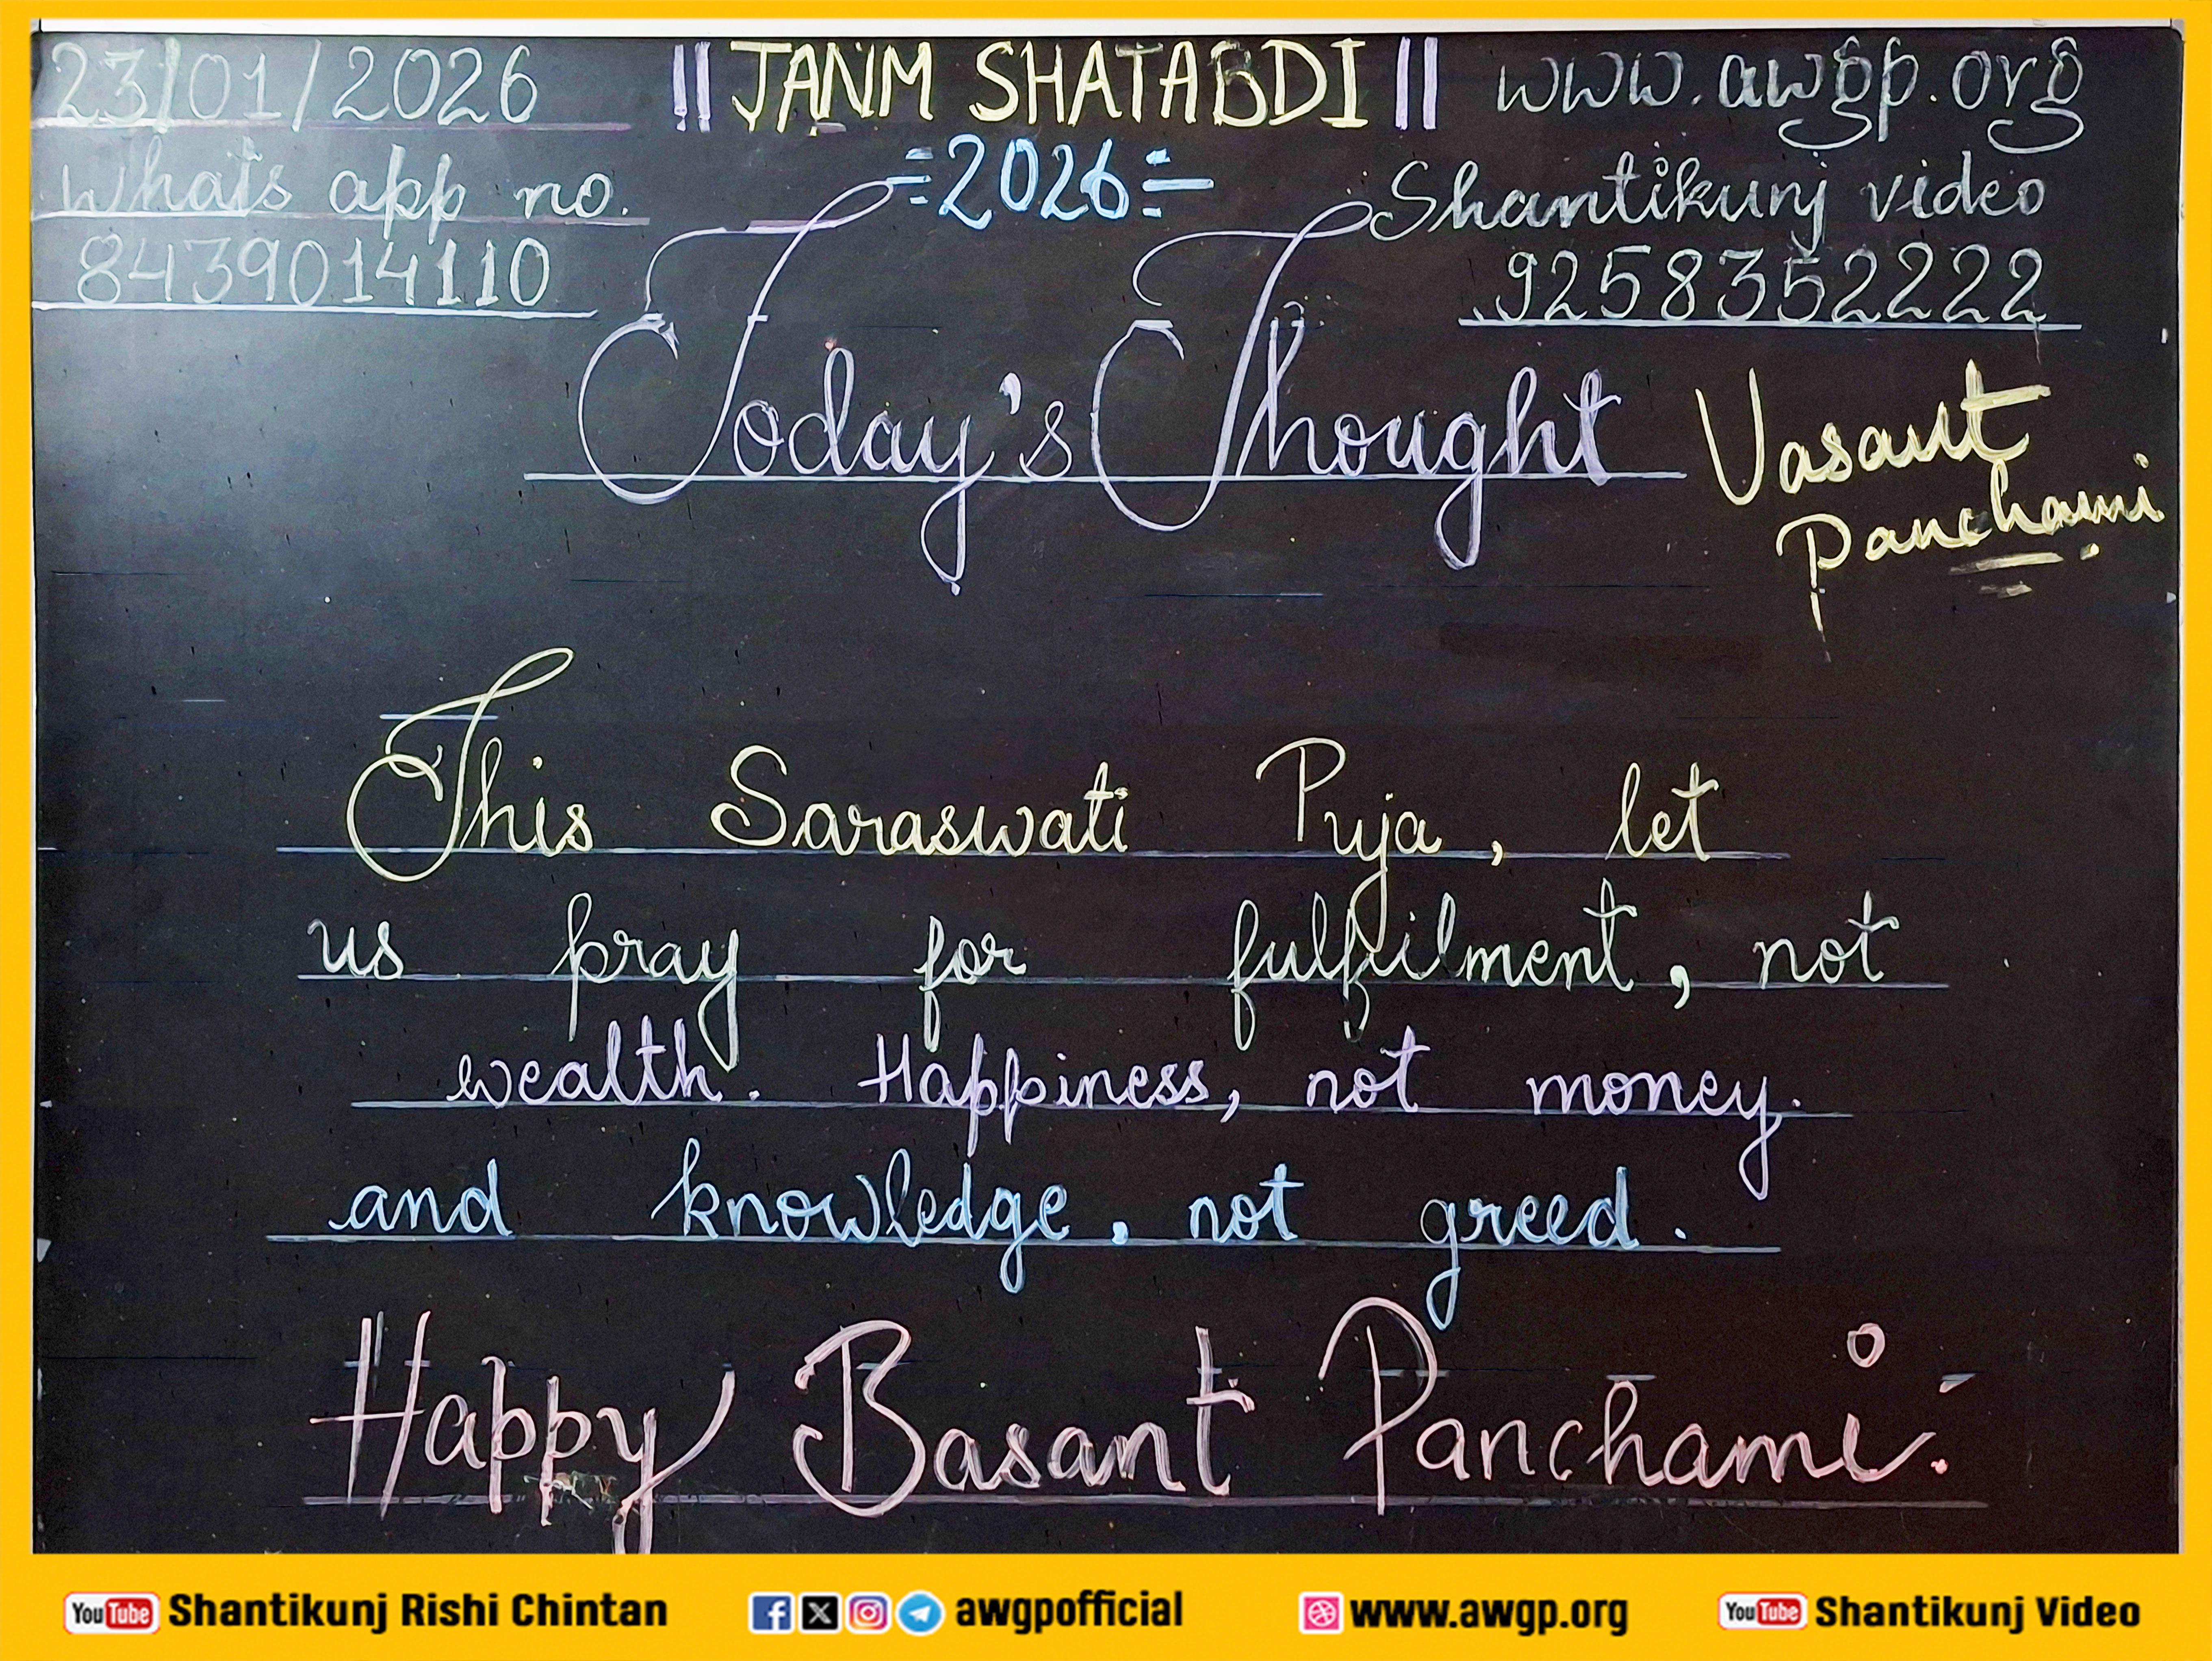 23/01/2026
|| JANM SHATABDI ||
www.awgp.org
Whats app no.
=2026=
Shantikunj video
8439014110
9258352222
Today's Thought
Vasant
Panchami
This Saraswati Puja, let
us pray for fulfilment, not
wealth. Happiness, not money.
and knowledge, not greed.
Happy Basant Panchami.
YouTube Shantikunj Rishi Chintan
awgpofficial
www.awgp.org
YouTube Shantikunj Video